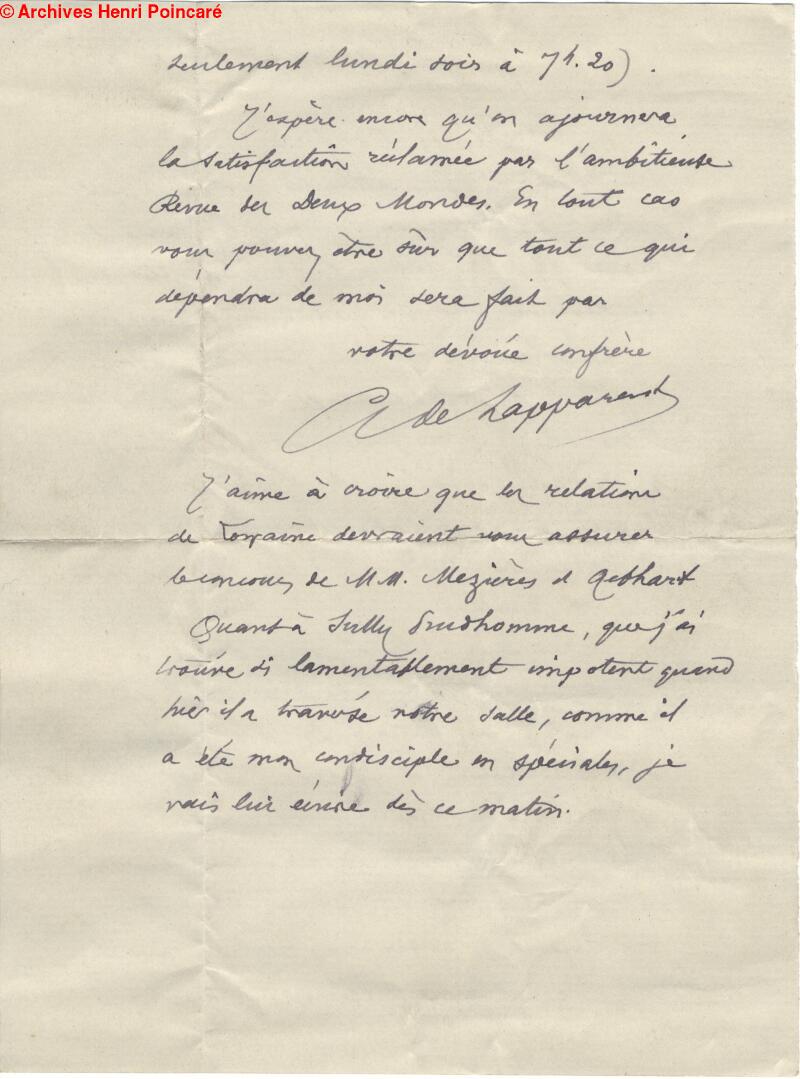 © Archives Henri Poincaré
seulement lundi soir à 7h.20).
J'espère encore qu'on ajournera
la satisfaction réclamée par l'ambitieuse
Revue des Deux Mondes. En tout cas
vous pouvez être sûr que tout ce qui
dépendra de moi sera fait par
votre dévoué confrère
A de Lapparent
J'aime à croire que les relations
de Lorraine devraient vous assurer
le concours de M.M. Mezières et Gebhart
Quant à Sully Prudhomme, que j'ai
trouvé si lamentablement impotent quand
hier il a traversé notre salle, comme il
a été mon condisciple en spéciales, je
vais lui écrire dès ce matin.